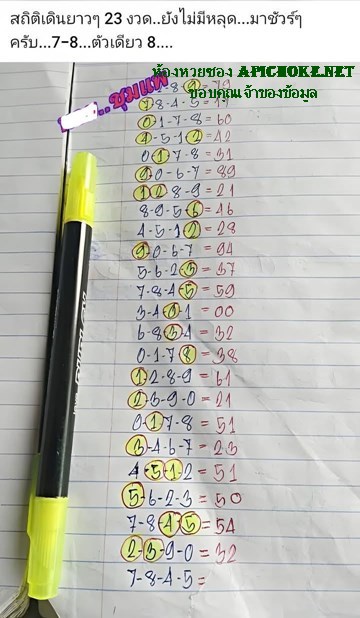 สถิติเดินยาวๆ 23 งวด..ยังไม่มีหลุด...มาชัวร์ๆ
ครับ...7-8...ตัวเดียว 8....
ห้องหวยซอง APICHOKE.NET
ขอบคุณเจ้าของข้อมูล
..ชุมแพ
7-8-4-5=
0-1-7-8=60
4-5-1-2=42
0-1-7-8=31
9-0-6-7=89
1-2-8-9=21
8-9-5-6=46
4-5-1-2=28
9-0-6-7=94
5-6-2-3=37
7-8-4-5=59
3-4-0-1=00
6-8-3-4=32
0-1-7-8=38
1-2-8-9=61
2-3-9-0=21
0-1-7-8=51
3-4-6-7=23
4-5-1-2=51
5-6-2-3=50
7-8-4-5=54
2-3-9-0=32
7-8-4-5=